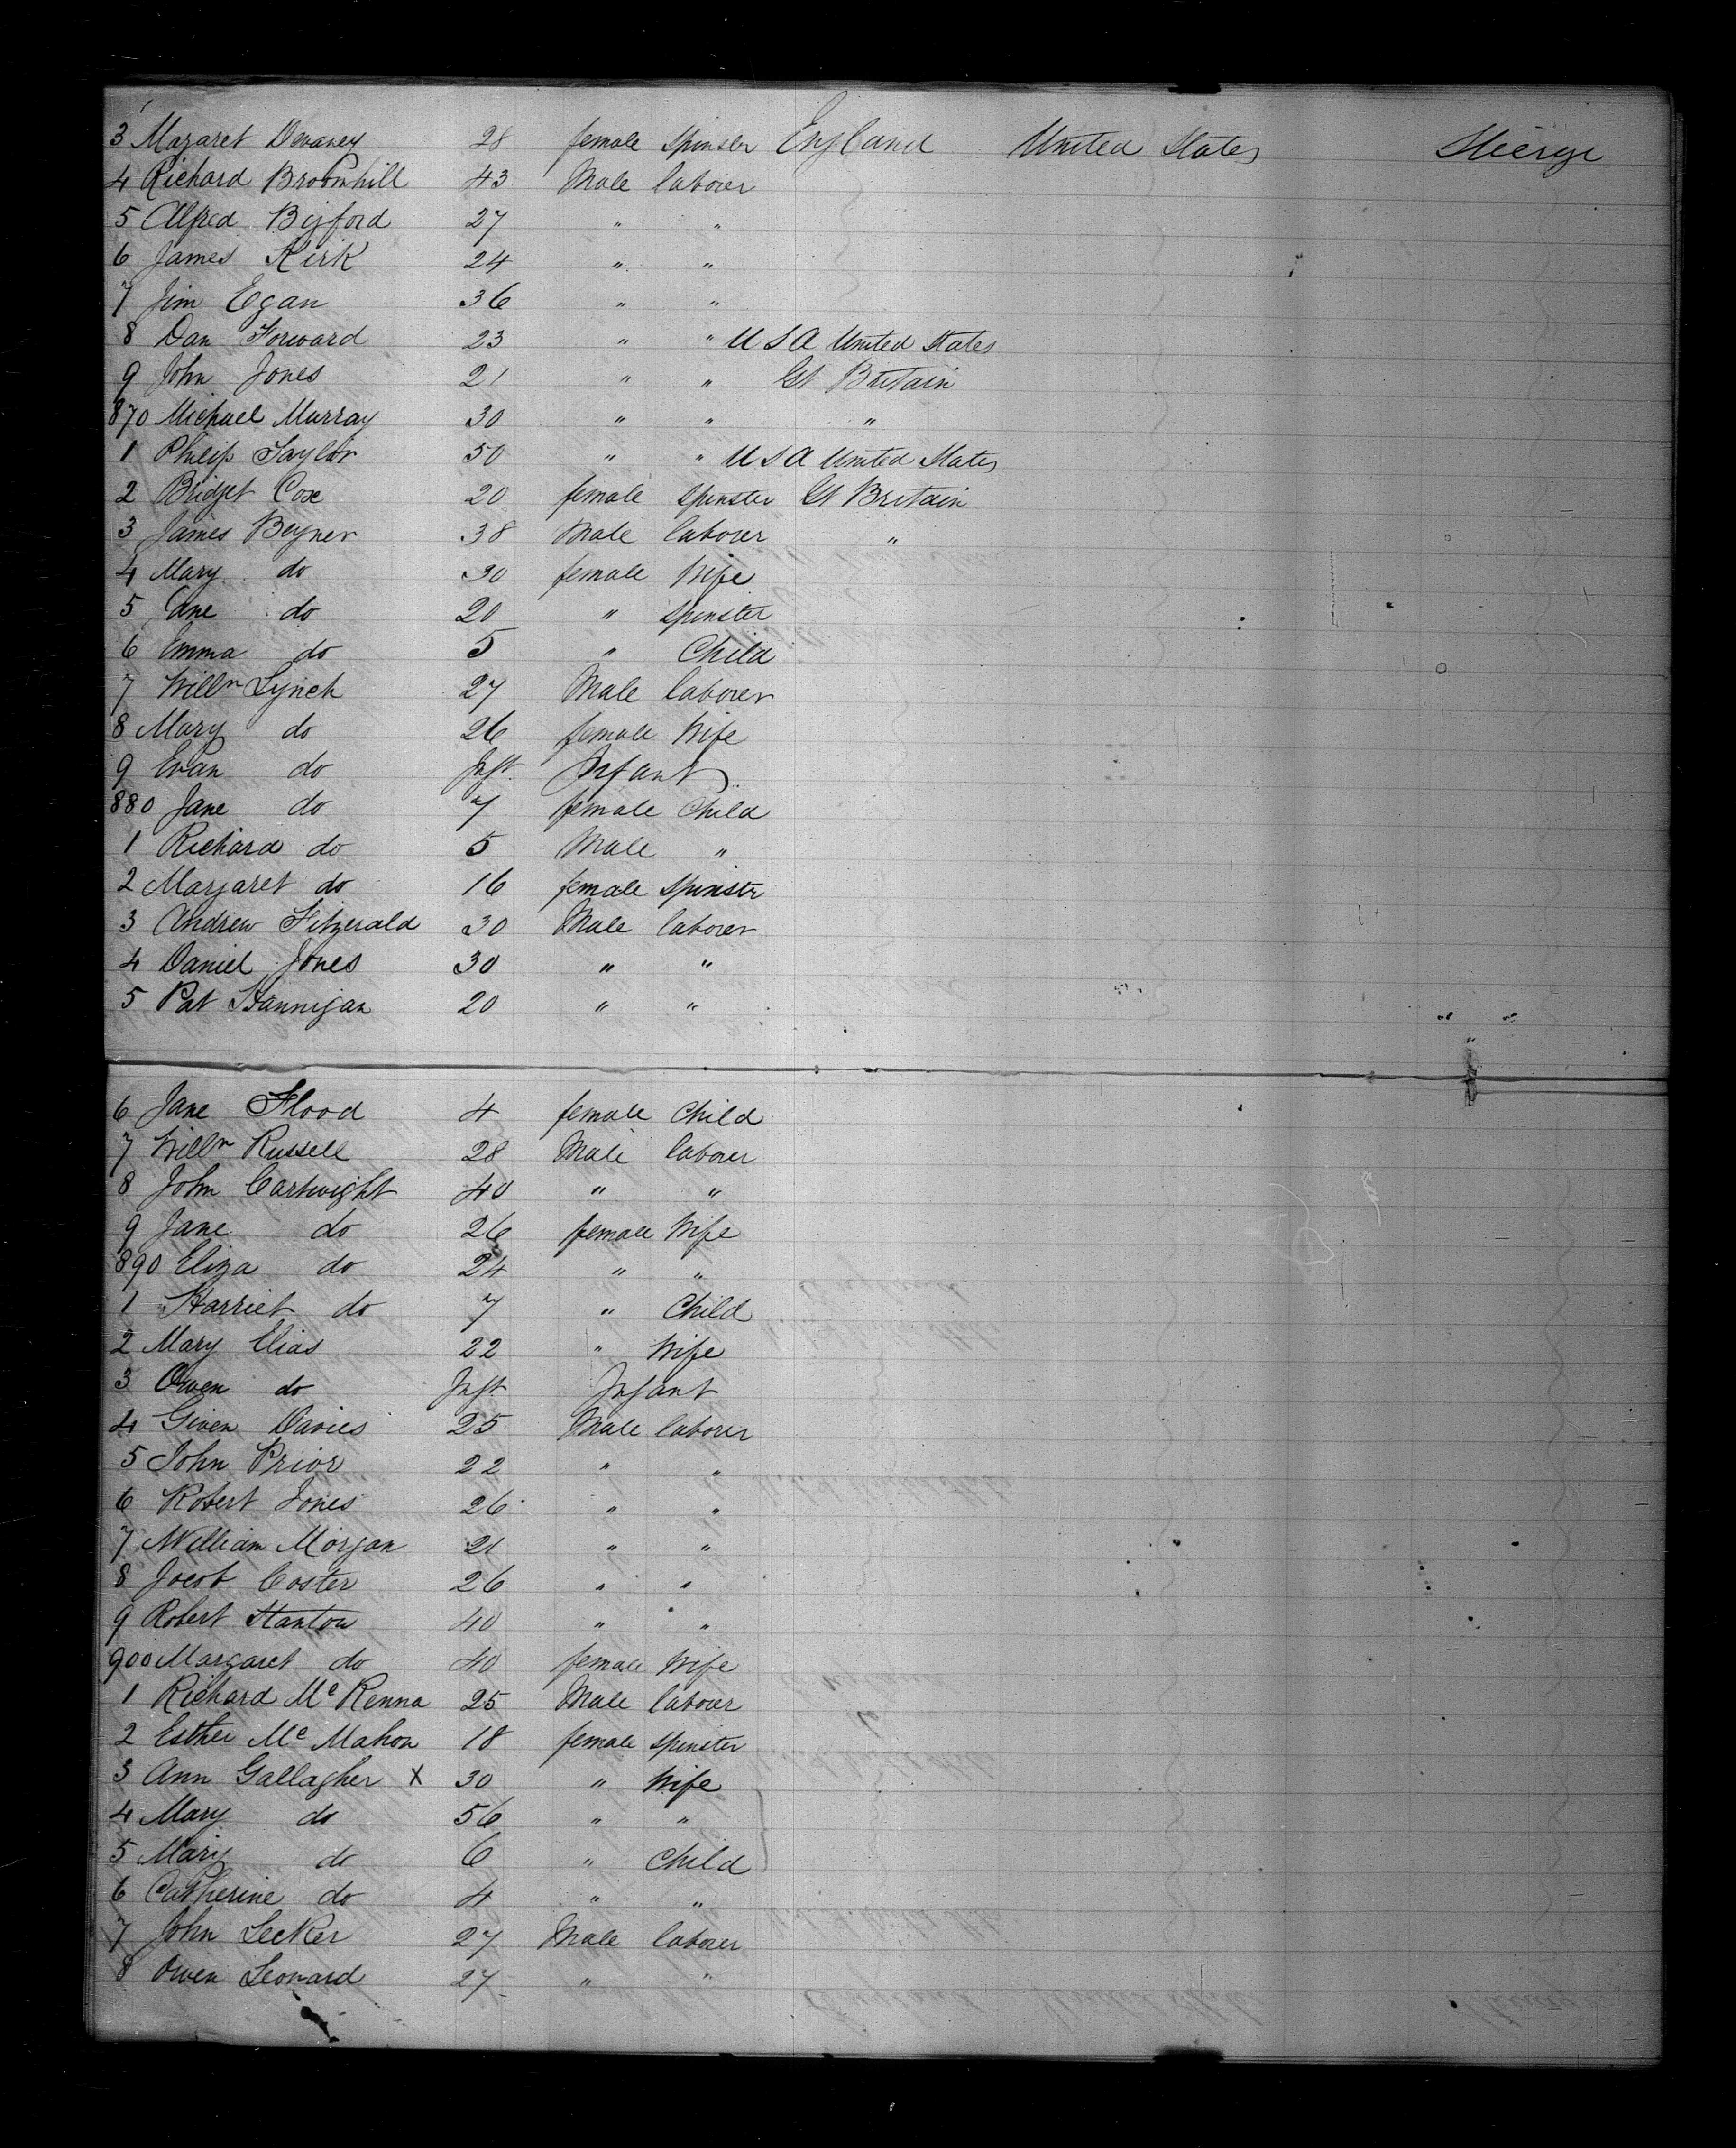 3 Margaret Devaney 28 female Spinster England United States Steerge
4 Richard Broomhill 43 Male laborer
5 Alfred Bigford 27 " "
6 James Kirk 24 " "
7 Jim Egan 36 " "
8 Dan Forward 23 " " U S A United States
9 John Jones 21 " " Gt Britain
870 Michael Murray 30 " " "
1 Philip Taylor 50 " " U S A United States
2 Bridget Cox 20 female Spinster Gt Britain
3 James Beyner 38 Male laborer "
4 Mary do 30 female Wife
5 Jane do 20 " Spinster
6 Emma do 5 " Child
7 Willm Lynch 27 Male laborer
8 Mary do 26 female Wife
9 Evan do Inft Infant
880 Jane do 7 female Child
1 Richard do 5 Male "
2 Margaret do 16 female Spinstr
3 Andrew Fitzerald 30 Male laborer
4 Daniel Jones 30 " "
5 Pat Hannigan 20 " "
6 Jane Flood 4 female Child
7 Willm Russell 28 Male laborer
8 John Cartwight 40 " "
9 Jane do 26 female Wife
890 Eliza do 24 " "
1 Harriet do 7 " Child
2 Mary Elias 22 " Wife
3 Owen do Inft Infant
4 Given Davies 25 Male laborer
5 John Prior 22 " "
6 Robert Jones 26 " "
7 William Morgan 21 " "
8 Jocob Coster 26 " "
9 Robert Stanton 40 " "
900 Margaret do 40 female Wife
1 Richard Mc Kenna 25 Male laborer
2 Esther Mc Mahon 18 female Spinster
3 Ann Gallagher X 30 " Wife
4 Mary do 56 " "
5 Mary do 6 " Child
6 Catherine do 4 " "
7 John Lecker 27 Male laborer
8 Owen Leonard 27 " "